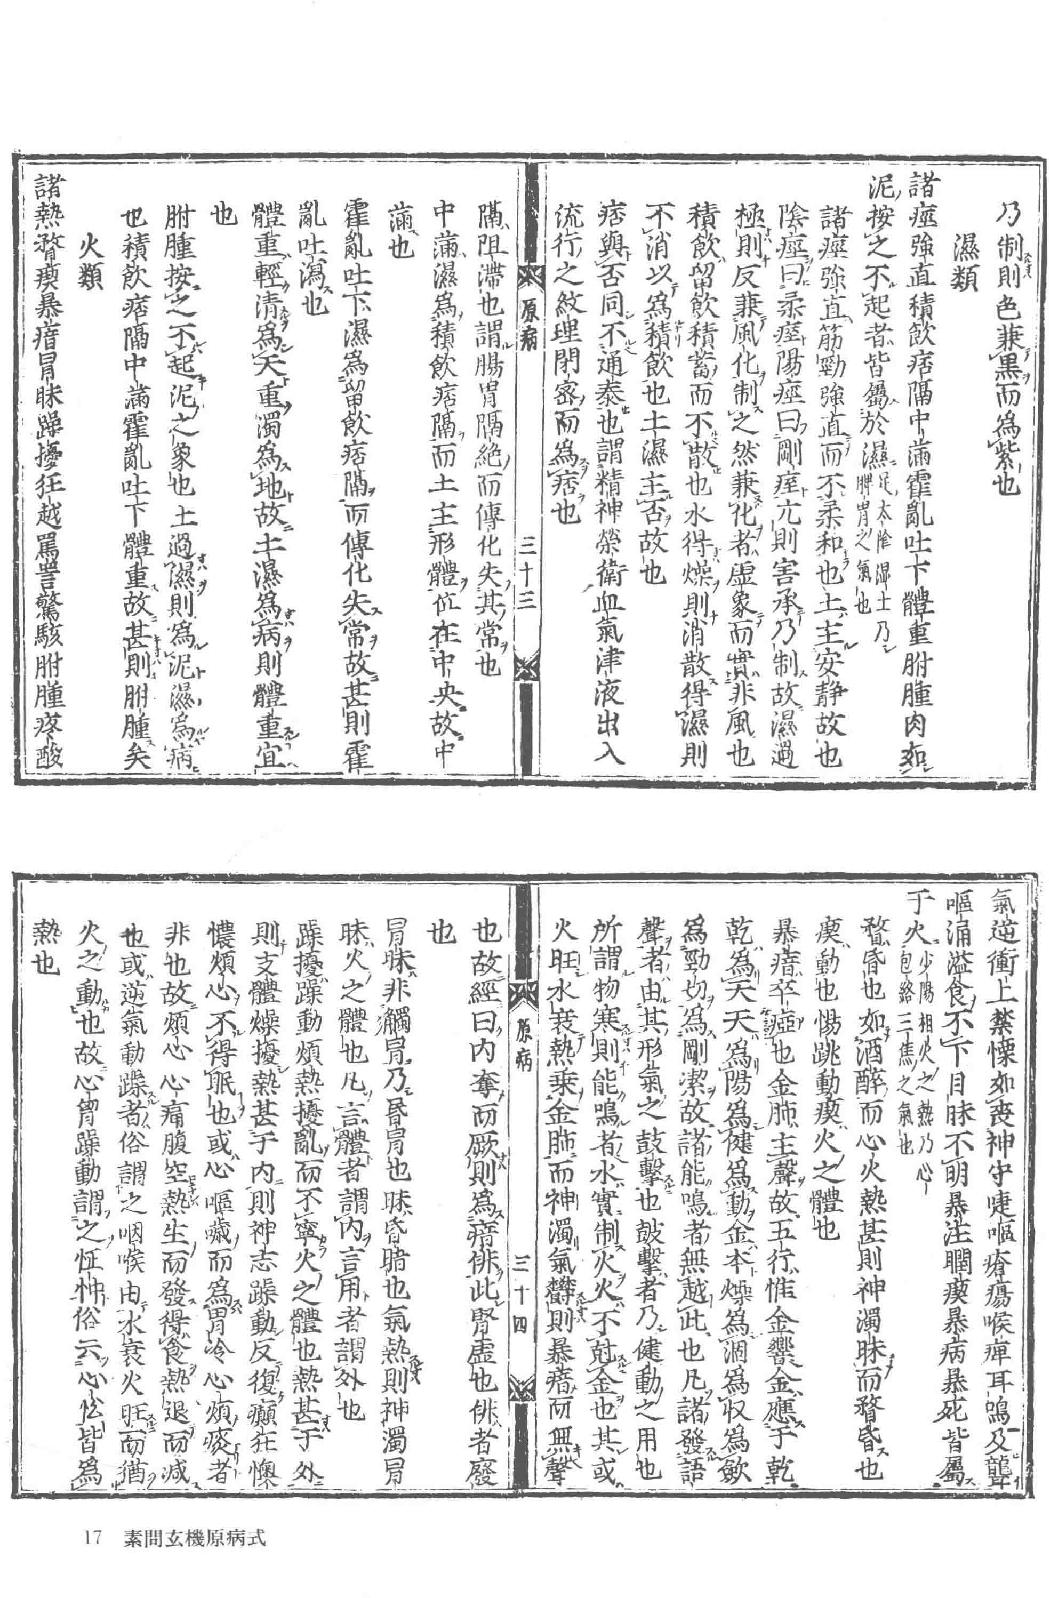 乃制則色兼黒而為紫也
濕類
諸痓強直積飲痞隔中滿霍亂吐下體重胕腫肉如
泥按之不起者皆屬於濕足太陰濕土乃脾胃之氣也
諸痓強直筋勁強直而不柔和也土主安静故也
陰痓曰柔痓陽痓曰剛痓亢則害承乃制故濕過
極則反兼風化制之然兼化者虛象而實非風也
積飲留飲積蓄而不散也水得燥則消散得濕則
不消以為積飲也土濕主否故也
痞與否同不通泰也謂精神榮衛血氣津液出入
流行之紋理閉密而為痞也
原病
三十三
隔阻滯也謂腸胃隔絶而傳化失其常也
中滿濕為積飲痞隔而土主形體位在中央故中
滿也
霍亂吐下濕為留飲痞隔而傳化失常故甚則霍
亂吐瀉也
體重輕清為天重濁為地故土濕為病則體重宜
也
胕腫按之不起泥之象也土過濕則為泥濕為病
也積飲痞隔中滿霍亂吐下體重故甚則胕腫矣
火類
諸熱瞀瘈暴瘖冒昧躁擾狂越罵詈驚駭胕腫疼酸
氣逆衝上禁慄如喪神守嚏嘔瘡瘍喉痺耳鳴及聾
嘔涌溢食不下目昧不明暴注瞤瘈暴病暴死皆屬
于火少陽相火之熱乃心包絡三焦之氣也
瞀昏也如酒醉而心火熱甚則神濁昧而瞀昏也
瘈動也惕跳動瘈火之體也
暴瘖卒瘂也金肺主聲故五行惟金響金應于乾
乾為天天為陽為健為動金本燥為涸為収為斂
為勁切為剛潔故諸能鳴者無越此也凡諸發語
聲者由其形氣之鼓擊也鼓擊者乃健動之用也
所謂物寒則能鳴者水實制火火不尅金也其或
火旺水衰熱乗金肺而神濁氣欝則暴瘖而無聲
原病
三十四
也故經曰内奪而厥則為瘖俳此腎虛也俳者廢
也
冒昧非觸冒乃昏冒也昧昏暗也氣熱則神濁冒
昧火之體也凡言體者謂内言用者謂外也
躁擾躁動煩熱擾亂而不寧火之體也熱甚于外
則支體燥擾熱甚于内則神志躁動反復癲狂懊
憹煩心不得眠也或心嘔噦而為胃冷心煩痰者
非也故煩心心痛腹空熱生而發得食熱退而减
也或逆氣動躁者俗謂之咽喉由水衰火旺而猶
火之動也故心胷躁動謂之怔忡俗云心忪皆為
熱也
17　素問玄機原病式